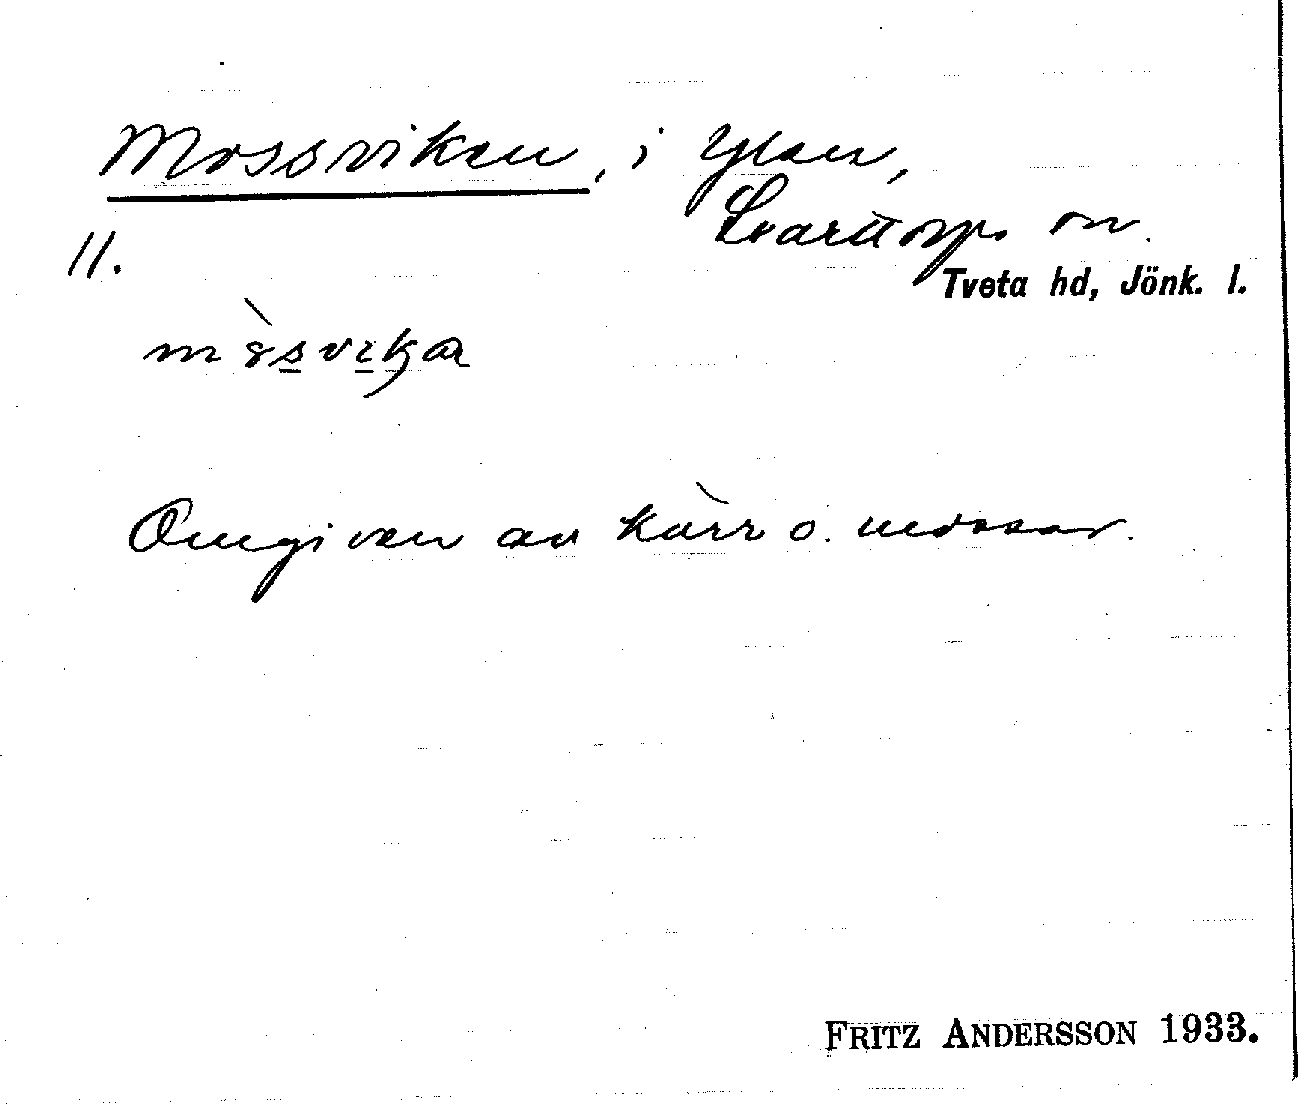 Mossviken, i Ylen,
Svarttorps sn.
11.
Tveta hd, Jönk. l.
Omgiven av kärr o. mossar.
FRITZ ANDERSSON 1933.